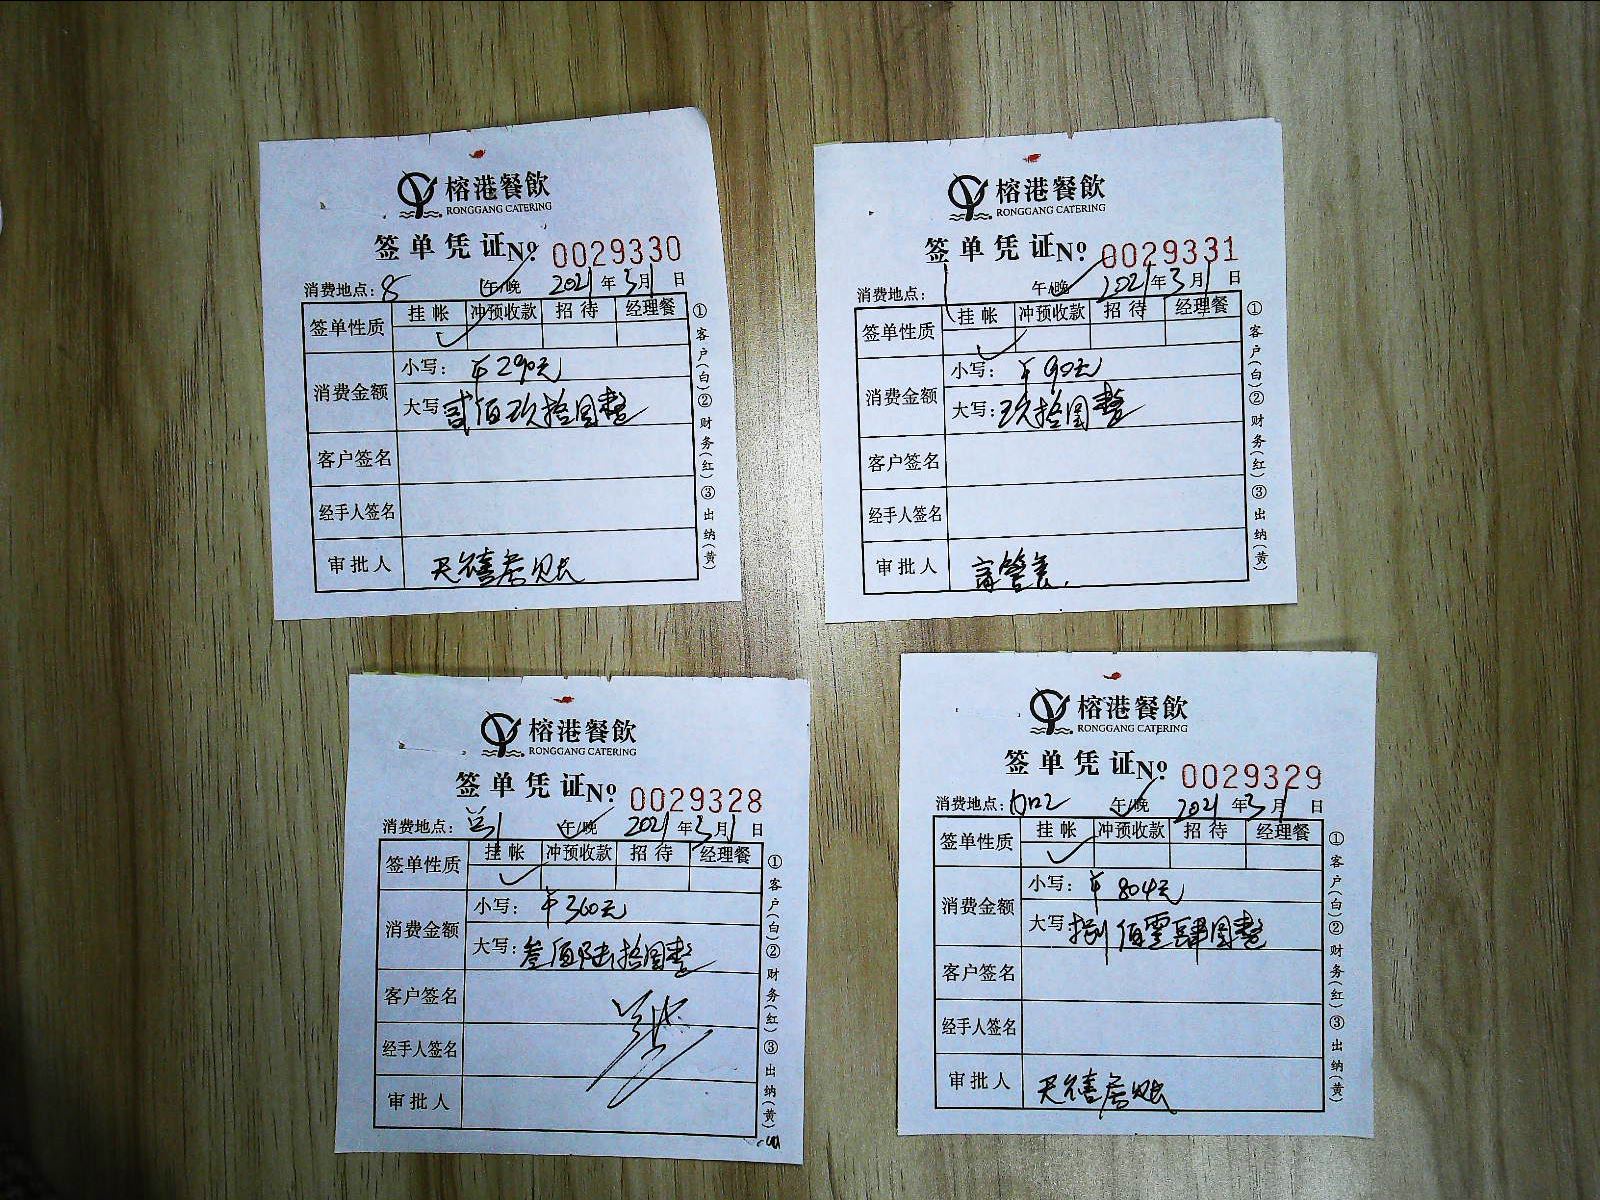 榕港餐飲
RONGGANG CATERING
签单凭证 № 0029330
消费地点：8 午/晚 2021年3月1日
签单性质 挂帐 冲预收款 招待 经理餐
消费金额
小写：￥290元
大写：贰佰玖拾圆整
客户签名
经手人签名
审批人
①客户（白）②财务（红）③出纳（黄）
榕港餐飲
RONGGANG CATERING
签单凭证 № 0029331
消费地点： 午/晚 2021年3月1日
签单性质 挂帐 冲预收款 招待 经理餐
消费金额
小写：￥90元
大写：玖拾圆整
客户签名
经手人签名
审批人
①客户（白）②财务（红）③出纳（黄）
榕港餐飲
RONGGANG CATERING
签单凭证 № 0029328
消费地点： 午/晚 2021年3月1日
签单性质 挂帐 冲预收款 招待 经理餐
消费金额
小写：￥360元
大写：叁佰陆拾圆整
客户签名
经手人签名
审批人
①客户（白）②财务（红）③出纳（黄）
榕港餐飲
RONGGANG CATERING
签单凭证 № 0029329
消费地点： 午/晚 2021年3月1日
签单性质 挂帐 冲预收款 招待 经理餐
消费金额
小写：￥804元
大写：捌佰零肆圆整
客户签名
经手人签名
审批人
①客户（白）②财务（红）③出纳（黄）